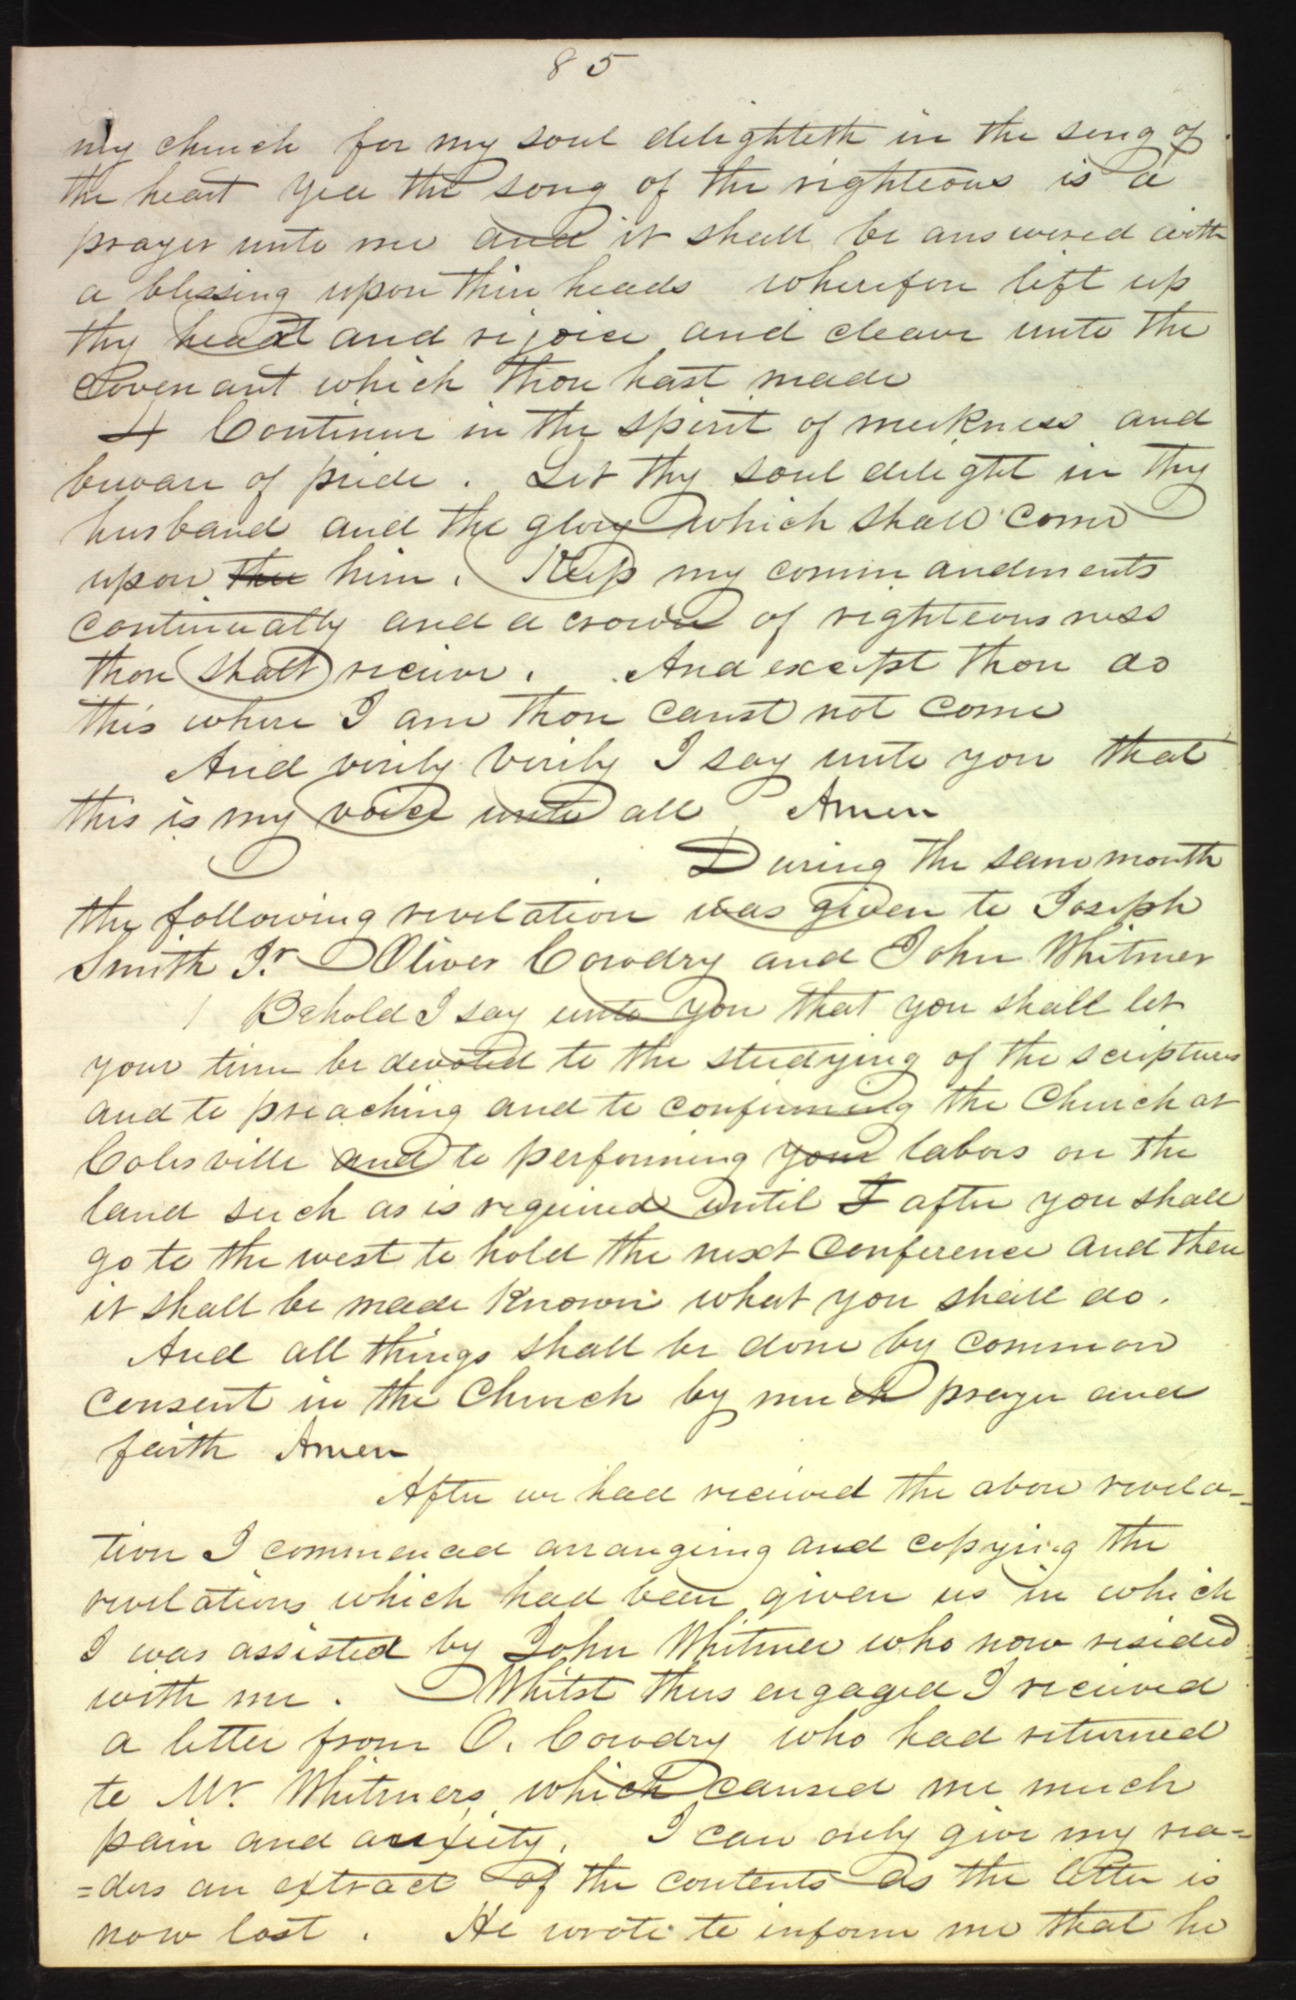 85
my church for my soul delighteth in the song of
the heart yea the song of the righteous is a
prayer unto me and it shall be answered with
a blessing upon thine heads wherefore lift up
thy heart and rejoice and cleave unto the
Covenant which thou hast made
4 Continue in the spirit of meekness and
beware of pride. Let thy soul delight in thy
husband and the glory which shall come
upon thee him. Keep my commandments
continually and a crown of righteousness
thou shalt receive. And except thou do
this where I am thou canst not come
And verily verily I say unto you that
this is my voice unto all Amen
During the same month
the following revelation was given to Joseph
Smith Jr. Oliver Cowdry and John Whitmer
1 Behold I say unto you that you shall let
your time be devoted to the studying of the scriptures
and to preaching and to confirming the Church at
Colesville and to performing your labors on the
land such as is required until I after you shall
go to the west to hold the next Conference and then
it shall be made known what you shall do.
And all things shall be done by common
consent in the Church by much prayer and
faith Amen
After we had received the above revela-
tion I commenced arrangeing and copying the
revelations which had been given us in which
I was assisted by John Whitmer who now resided
with me. Whilst thus engaged I received
a letter from O. Cowdry who had returned
to Mr. Whitmers, which caused me much
pain and anxiety. I can only give my rea=
=ders an extract of the contents as the letter is
now lost. He wrote to inform me that he